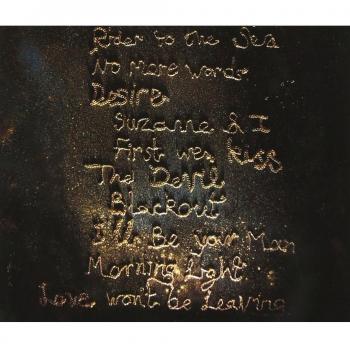 Rider to the Sea
No More Words
Desire
Suzanne & I
First we Kiss
The Devil
Blackout
I'll Be your Man
Morning Light
Love won't be Leaving